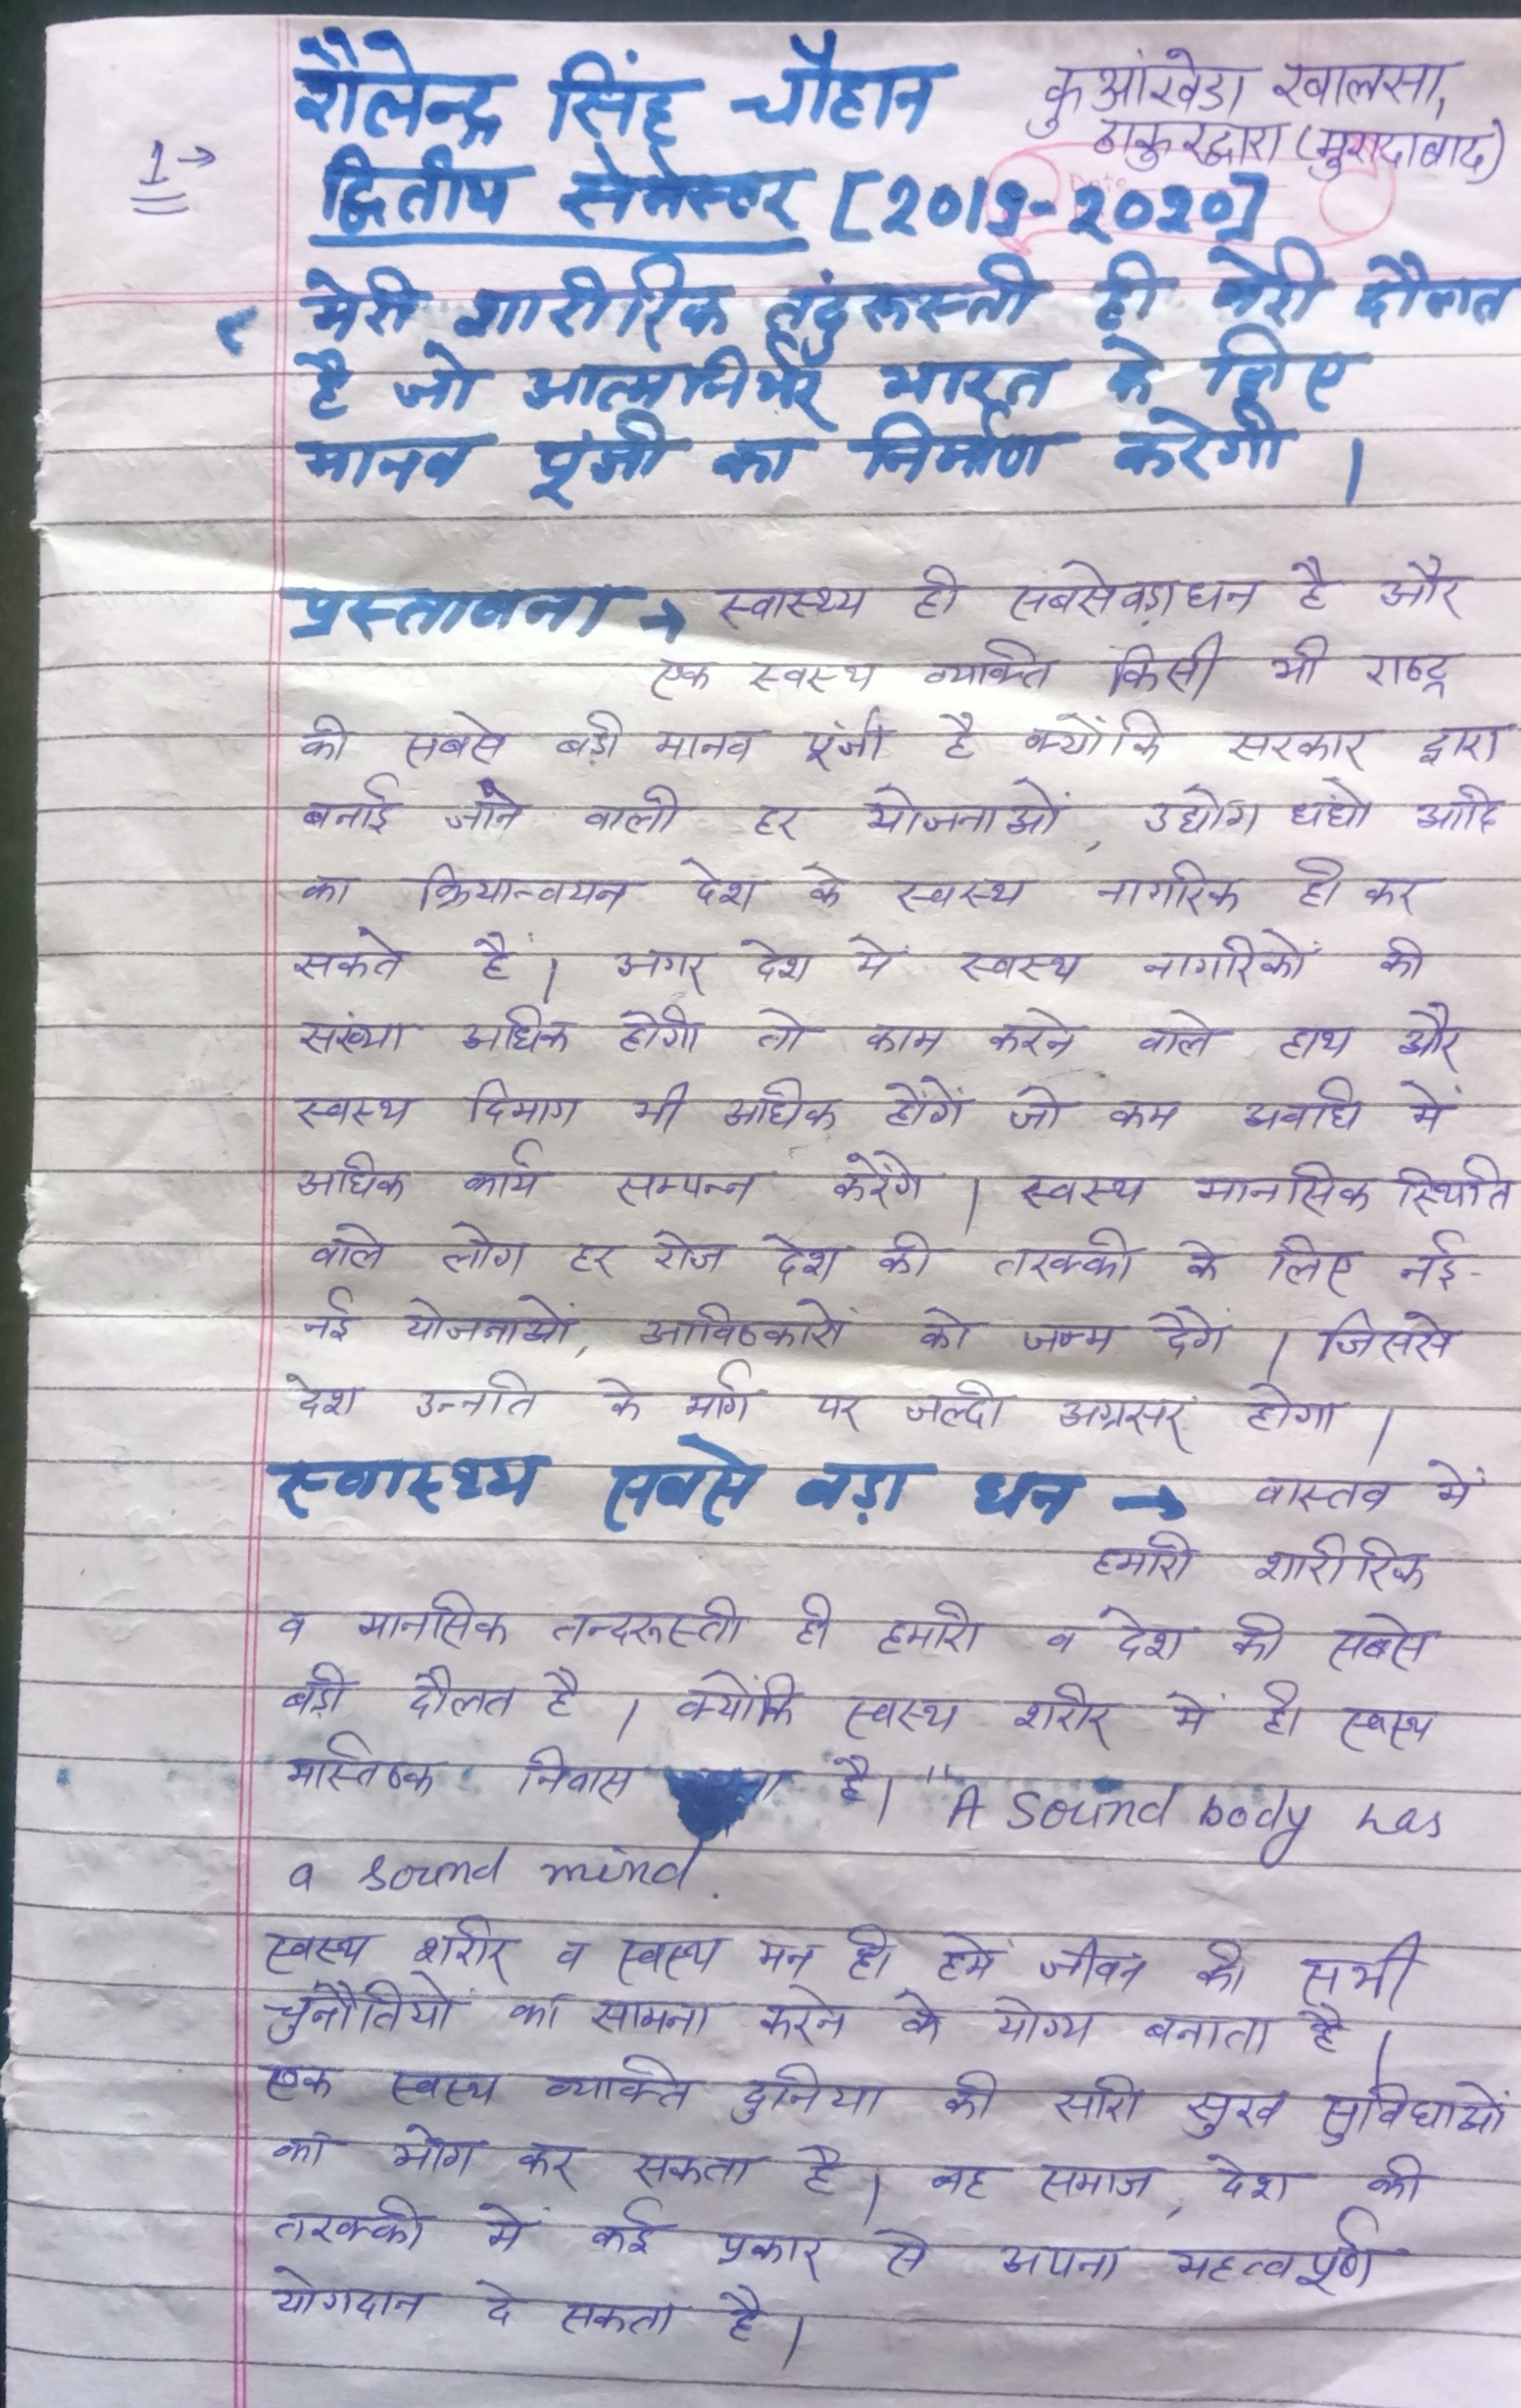 शैलेन्द्र सिंह चौहान
कुआंखेडा खालसा,
ठाकुरद्वारा (मुरादाबाद)
1→
द्वितीय सेमेस्टर [2019-2020]
मेरी शारीरिक तंदुरूस्ती ही मेरी दौलत
है जो आत्मनिर्भर भारत के लिए
मानव पूंजी का निर्माण करेगी ।
प्रस्तावना → स्वास्थ्य ही सबसे बड़ा धन है और
एक स्वस्थ व्यक्ति किसी भी राष्ट्र
की सबसे बड़ी मानव पूंजी है क्योंकि सरकार द्वारा
बनाई जाने वाली हर योजनाओं, उद्योग धंधो आदि
का क्रियान्वयन देश के स्वस्थ नागरिक ही कर
सकते हैं । अगर देश में स्वस्थ नागरिकों की
संख्या अधिक होगी तो काम करने वाले हाथ और
स्वस्थ दिमाग भी अधिक होंगें जो कम अवधि में
अधिक कार्य सम्पन्न करेंगे । स्वस्थ मानसिक स्थिति
वाले लोग हर रोज देश की तरक्की के लिए नई-
नई योजनाओं, आविष्कारों को जन्म देंगे । जिससे
देश उन्नति के मार्ग पर जल्दी अग्रसर होगा ।
स्वास्थ्य सबसे बड़ा धन → वास्तव में
हमारी शारीरिक
व मानसिक तन्दरूस्ती ही हमारी व देश की सबसे
बड़ी दौलत है । क्योंकि स्वस्थ शरीर में ही स्वस्थ
मस्तिष्क निवास है। "A sound body has
a sound mind.
स्वस्थ शरीर व स्वस्थ मन ही हमें जीवन की सभी
चुनौतियों का सामना करने के योग्य बनाता है ।
एक स्वस्थ व्यक्ति दुनिया की सारी सुख सुविधाओं
का भोग कर सकता है । वह समाज, देश की
तरक्की में कई प्रकार से अपना महत्वपूर्ण
योगदान दे सकता है ।